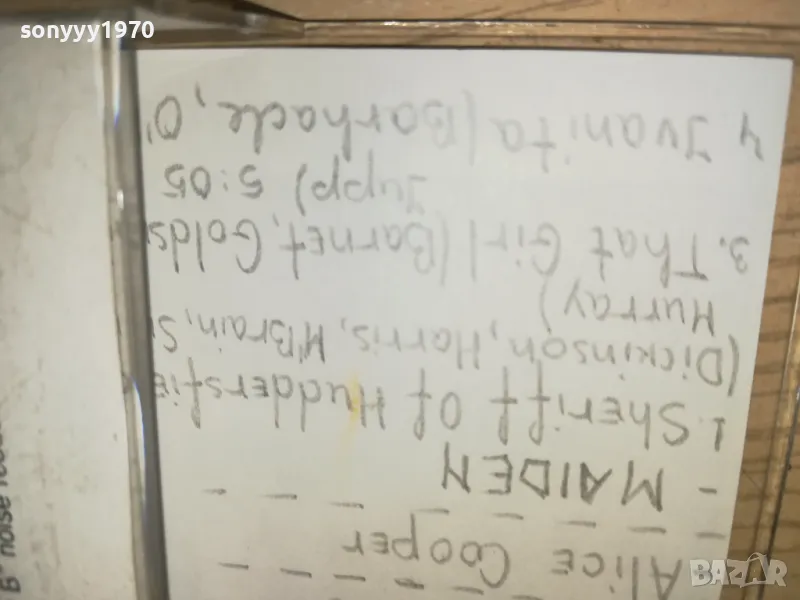 sonyyy1970
Alice Cooper
- - - - - - - -
- MAIDEN - - -
1. Sheriff Of Huddersfie
(Dickinson, Harris, M'Brain, S
Murray)
3. That Girl (Barnet, Golds
Jupp) 5:05
4 Juanita (Barhacle, O'
B" noise
BAZAR